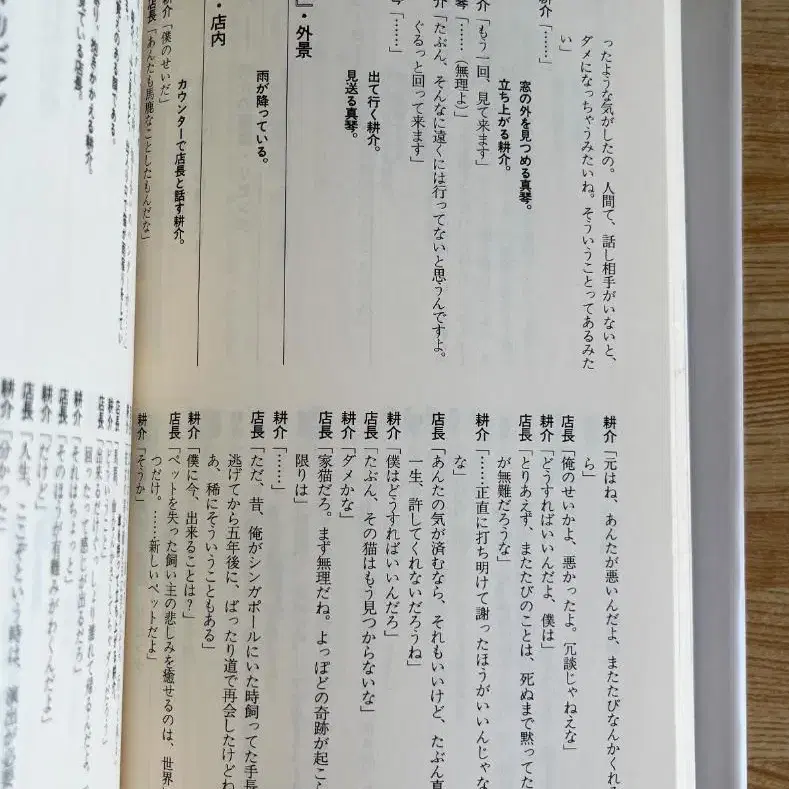 ったような気がしたの。人間て、話し相手がいないと、
ダメになっちゃうみたいね。そういうことってあるみた
い」
耕介「……」
窓の外を見つめる真琴。
立ち上がる耕介。
耕介「もう一回、見て来ます」
琴「……（無理よ）」
介「たぶん、そんなに遠くには行ってないと思うんですよ。
ぐるっと回って来ます」
琴「……」
出て行く耕介。
見送る真琴。
』・外景
雨が降っている。
・店内
カウンターで店長と話す耕介。
耕介「僕のせいだ」
店長「あんたも馬鹿なことしたもんだな」
耕介「元はね、あんたが悪いんだよ、またたびなんかくれる
ら」
店長「俺のせいかよ、悪かったよ。冗談じゃねえな」
耕介「どうすればいいんだよ、僕は」
店長「とりあえず、またたびのことは、死ぬまで黙ってた
が無難だろうな」
耕介「……正直に打ち明けて謝ったほうがいいんじゃな
な」
店長「あんたの気が済むなら、それもいいけど、たぶん真
一生、許してくれないだろうね」
耕介「僕はどうすればいいんだろ」
店長「たぶん、その猫はもう見つからないな」
耕介「ダメかな」
店長「家猫だろ。まず無理だね。よっぽどの奇跡が起こら
限りは」
耕介「……」
店長「ただ、昔、俺がシンガポールにいた時飼ってた手長
逃げてから五年後に、ばったり道で再会したけどね
あ、稀にそういうこともある」
耕介「僕に今、出来ることは？」
店長「ペットを失った飼い主の悲しみを癒せるのは、世界
つだけ。……新しいペットだよ」
耕介「そうか」
耕介「それはちょっと」
店長「そのほうが有難みがわくんだよ」
耕介「だけど」
店長「人生、ここぞという時は、演出が必要
耕介「分かった」